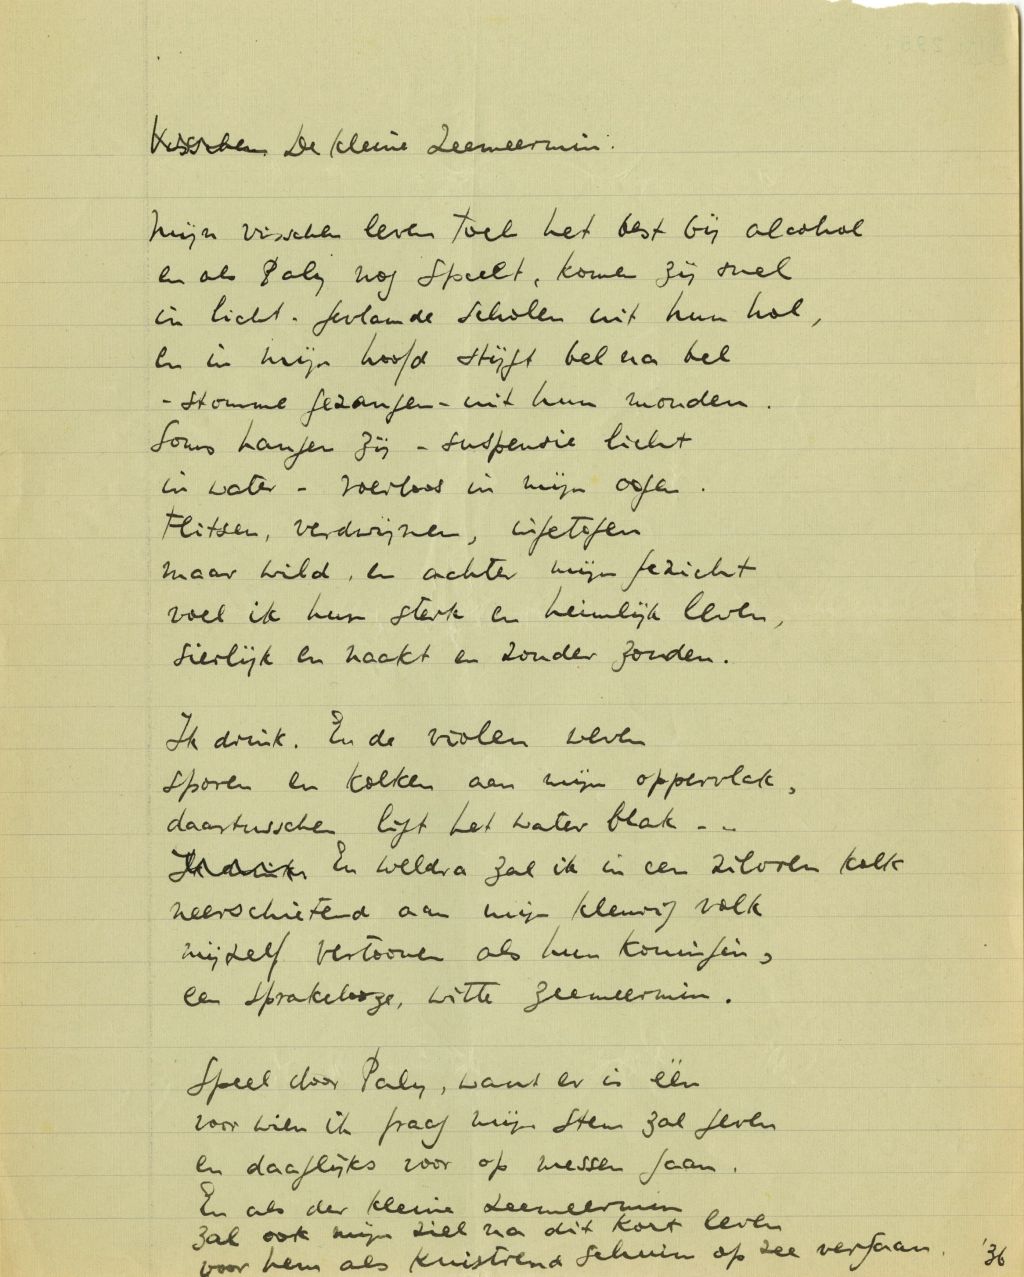 Visschen De kleine Zeemeermin.
Mijn visschen leven toch het best bij alcohol
en als Paly nog speelt, komen zij snel
in licht-gevlamde scholen uit hun hol,
en in mijn hoofd stijgt bel na bel
- stomme gezangen - uit hun monden.
Soms hangen zij - suspensie licht
in water - roerloos in mijn oogen.
Flitsen, verdwijnen, ingetogen
maar wild, en achter mijn gezicht
voel ik hun sterk en heimlijk leven,
sierlijk en naakt en zonder zonden.
Ik drink. En de violen weven
sporen en kolken aan mijn oppervlak,
daartusschen ligt het water blak - -
Ik drink En weldra zal ik in een zilvren kolk
neerschietend aan mijn kleurig volk
mijzelf vertoonen als hun koningin,
een sprakelooze, witte zeemeermin.
Speel door Paly, want er is één
voor wien ik graag mijn stem zal geven
en daaglijks voor op messen gaan.
En als der kleine zeemeermin
zal ook mijn ziel na dit kort leven
voor hem als knistrend schuim op zee vergaan. '36